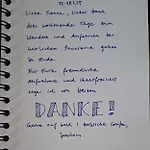 15.08.15
Liebe Hanna, lieber Hans,
drei wohltuende Tage zum
Wandern und Ausruhen bei
herrlichem Panorama gehen
zu Ende.
Für Eure freundliche
Aufnahme und Gastfreundschaft
sage ich von Herzen
DANKE!
Gerne auf bald! Herzliche Grüße,